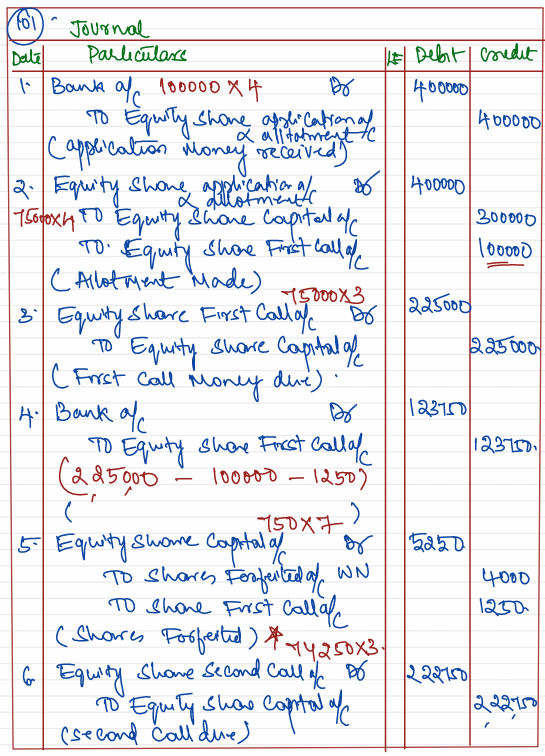 101
Journal
Date Particulars LF Debit Credit
1. Bank a/c 100000 X 4 Dr 400000
To Equity Share application a/c & allotment 400000
(application Money received)
2. Equity Share application a/c & allotment Dr 400000
75000X4 TO Equity Share Capital a/c 300000
To. Equity Share First Call a/c 100000
(Allotment Made)
75000X3
3. Equity Share First Call a/c Dr 225000
To Equity Share Capital a/c 225000.
(First Call Money due).
4. Bank a/c Dr 123750
TO Equity Share First Call a/c 123750.
(225000 – 100000 – 1250)
( )
750X7
5. Equity Share Capital a/c Dr 5250
TO Shares Forfeited a/c WN 4000
TO Share First Call a/c 1250.
(Shares Forfeited) * 74250X3.
6 Equity Share Second Call a/c Dr 222750
To Equity Share Capital a/c 222750
(Second Call due)